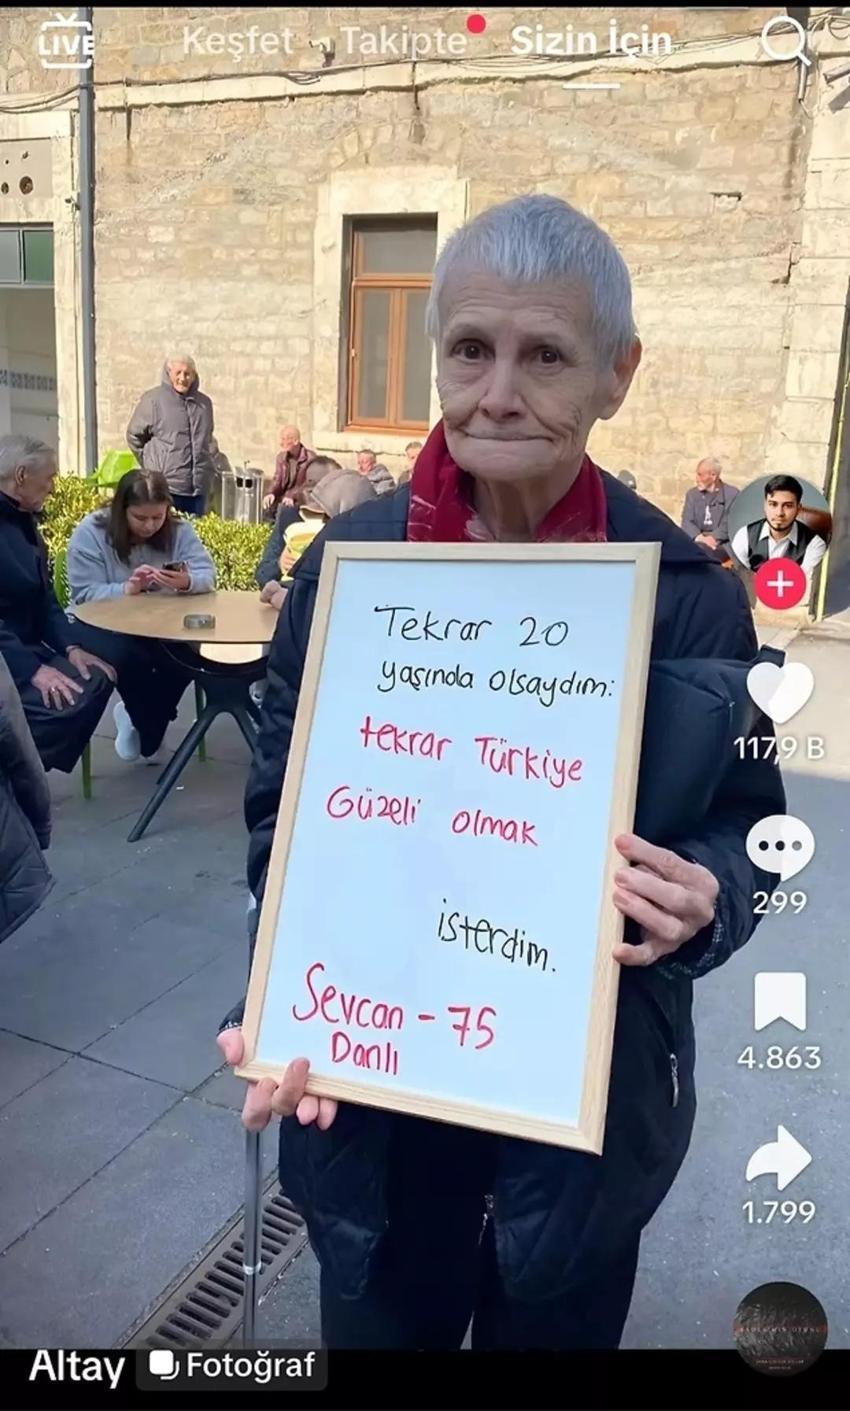 LIVE
Keşfet
Takipte
Sizin İçin
Tekrar 20
yaşında olsaydım:
tekrar Türkiye
Güzeli olmak
isterdim.
Sevcan - 75
Danlı
117,9 B
299
4.863
1.799
Altay
Fotoğraf